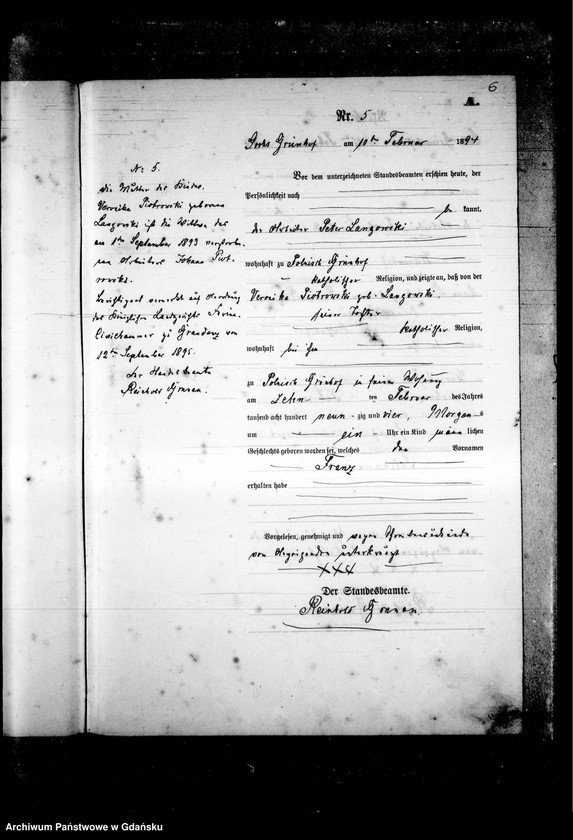 6
A.
Nr. 5
Grünhof am 10ten Februar 1894
Vor dem unterzeichneten Standesbeamten erschien heute, der
Persönlichkeit nach
be kannt,
der Arbeiter Peter Langowski
wohnhaft zu Polnisch Grünhof
katholischer Religion, und zeigte an, daß von der
Veronika Piotrowski geb. Langowski,
seiner Tochter
katholischer Religion,
wohnhaft bei ihm
zu Polnisch Grünhof in seiner Wohnung
am zehn ten Februar des Jahres
tausend acht hundert neun zig und vier, Morgens
um ein Uhr ein Kind männ lichen
Geschlechts geboren worden sei, welches den Vornamen
Franz
erhalten habe
Vorgelesen, genehmigt und wegen
von unterkreuzt
XXX
Der Standesbeamte.
Reinhold
No 5.
Die Mutter des Kindes
Veronika Piotrowski geborene
Langowski ist die Wittwe des
am 1ten September 1893 verstorbe-
nen Arbeiters Johann Piot-
rowski.
Berichtigend vermerkt auf Anordnung
des Königlichen Landgerichts
Civilkammer zu Graudenz vom
12ten September 1895.
Der Standesbeamte
Reinhold
Archiwum Państwowe w Gdańsku